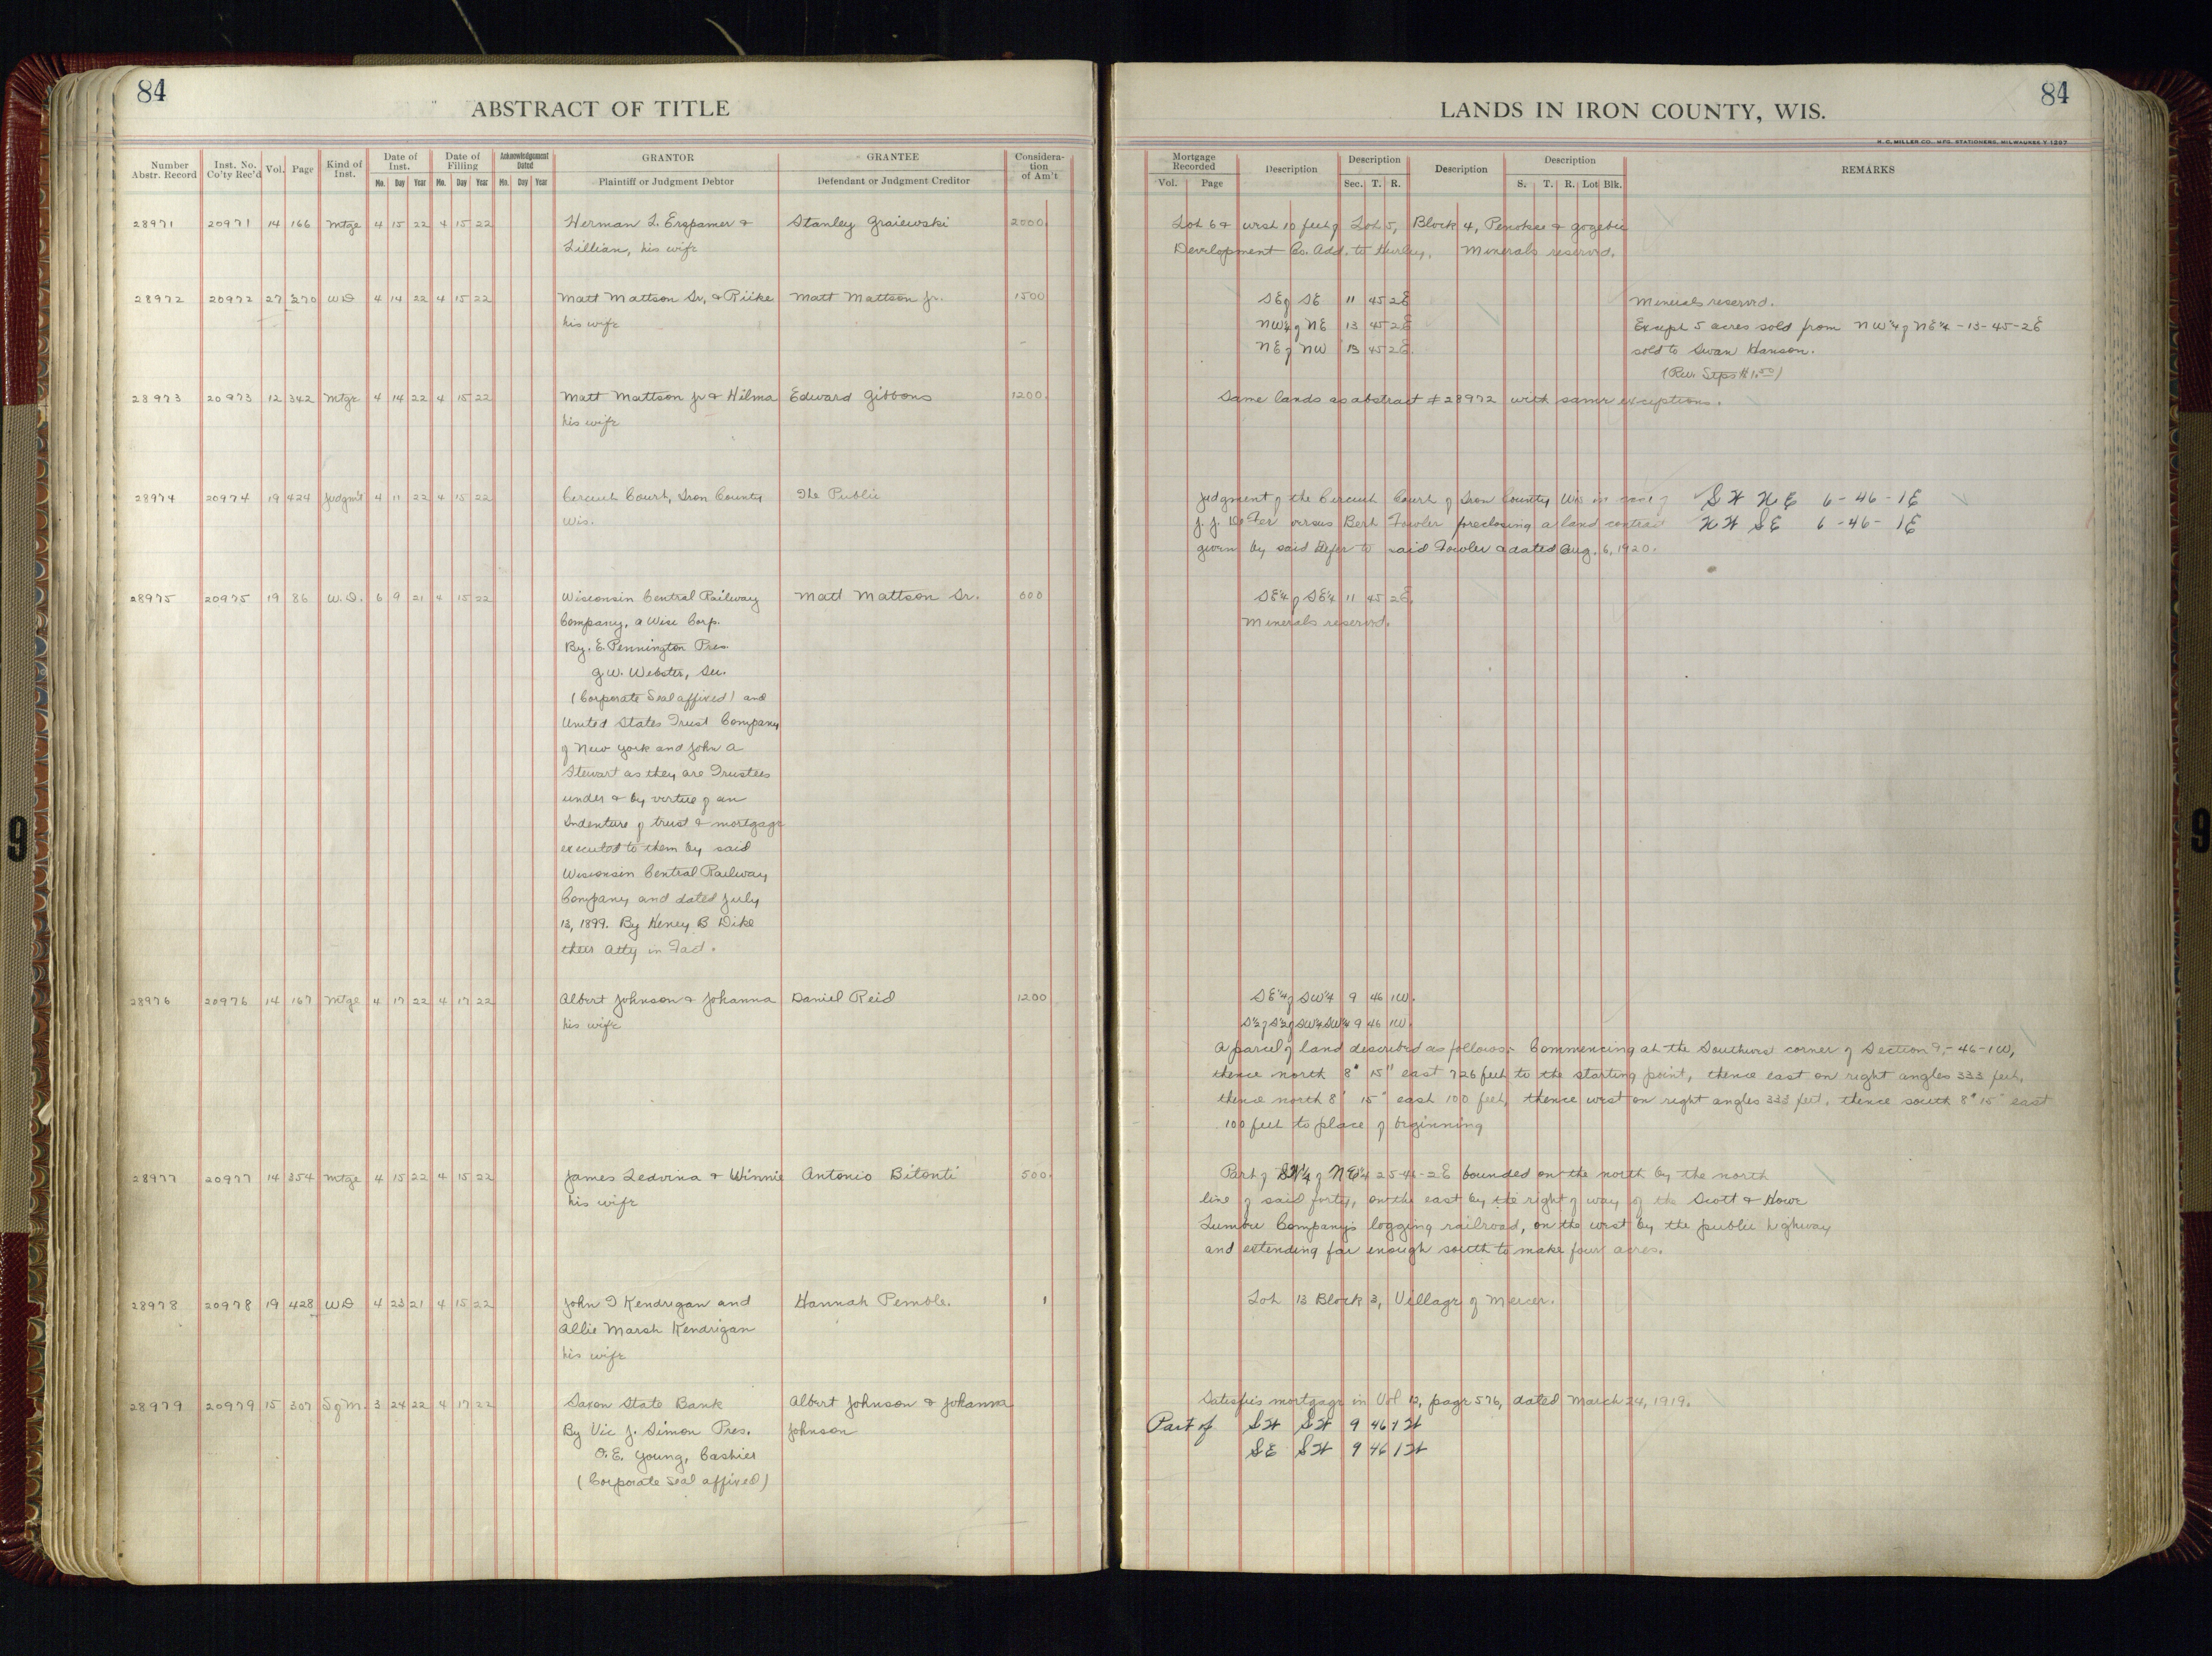 84
ABSTRACT OF TITLE
Number Abstr. Record
Inst. No. Co'ty Rec'd
Vol.
Page
Kind of Inst.
Date of Inst.
Mo. Day Year
Date of Filling
Mo. Day Year
Acknowledgement Dated
Mo. Day Year
GRANTOR
Plaintiff or Judgment Debtor
GRANTEE
Defendant or Judgment Creditor
Considera-tion of Am't
28971 20971 14 166 Mtge 4 15 22 4 15 22 Herman L. Ergpamer & Stanley Graiewski 2000
Lillian, his wife
28972 20972 27 270 WD 4 14 22 4 15 22 Matt Mattson Sr. & Riike Matt Mattson Jr. 1500
his wife
28973 20973 12 342 Mtge 4 14 22 4 15 22 Matt Mattson Jr & Hilma Edward Gibbons 1200
his wife
28974 20974 19 424 Judgm't 4 11 22 4 15 22 Circuit Court, Iron County The Public
Wis.
28975 20975 19 86 W.D. 6 9 21 4 15 22 Wisconsin Central Railway Matt Mattson Sr. 600
Company, a Wise Corp.
By. E. Pennington Pres.
G.W. Webster, Sec.
(Corporate Seal affixed) and
United States Trust Company
of New York and John A
Stewart as they are Trustees
under & by virtue of an
Indenture of trust & mortgage
executed to them by said
Wisconsin Central Railway
Company and dated July
13, 1899. By Henry B Dike
their Atty in Fact.
28976 20976 14 167 Mtge 4 17 22 4 17 22 Albert Johnson & Johanna Daniel Reid 1200
his wife
28977 20977 14 354 Mtge 4 15 22 4 15 22 James Ledvina & Winnie Antonio Bitonti 500
his wife
28978 20978 19 428 WD 4 23 21 4 15 22 John T Kendrigan and Hannah Pemble. 1
Allie Marsh Kendrigan
his wife
28979 20979 15 307 S of M. 3 24 22 4 17 22 Saxon State Bank Albert Johnson & Johanna
By Vic J. Simon Pres. Johnson
O.E. Young, Cashier
(Corporate Seal affixed)
LANDS IN IRON COUNTY, WIS.
84
H. C. MILLER CO., MFG. STATIONERS, MILWAUKEE
Mortgage Recorded
Vol. Page
Description
Description
Sec. T. R.
Description
Description
S. T. R. Lot Blk.
REMARKS
Lot 6 & west 10 feet of Lot 5, Block 4, Penokee & Gogebic
Development Co. Add. to Hurley. Minerals reserved.
SE of SE 11 45 2E Minerals reserved.
NW¼ of NE 13 45 2E Except 5 acres sold from NW¼ of NE¼ -13-45-2E
NE of NW 13 45 2E. sold to Swan Hanson.
(Rev. Stps $1.50)
Same lands as abstract #28972 with same exceptions.
Judgment of the Circuit Court of Iron County, Wis in case of SW NE 6-46-1E
J. J. DeFer versus Bert Fowler foreclosing a land contract NW SE 6-46-1E
given by said Defer to said Fowler & dated Aug. 6, 1920.
SE¼ of SE¼ 11 45 2E.
Minerals reserved.
SE¼ of SW¼ 9 46 1W.
S½ of S½ of SW¼ SW¼ 9 46 1W.
A parcel of land described as follows:- Commencing at the Southwest corner of Section 9,-46-1W,
thence north 8° 15" east 726 feet to the starting point, thence east on right angles 333 feet,
thence north 8° 15" east 100 feet, thence west on right angles 333 feet, thence south 8° 15" east
100 feet to place of beginning
Part of SW¼ of NE¼ 25-46-2E bounded on the north by the north
line of said forty, on the east by the right of way of the Scott & Howe
Lumber Company's logging railroad, on the west by the public highway
and extending far enough south to make four acres.
Lot 13 Block 3, Village of Mercer.
Satisfies mortgage in Vol 12, page 576, dated March 24, 1919.
Part of SW SW 9 46 1W
SE SW 9 46 1W
9
9